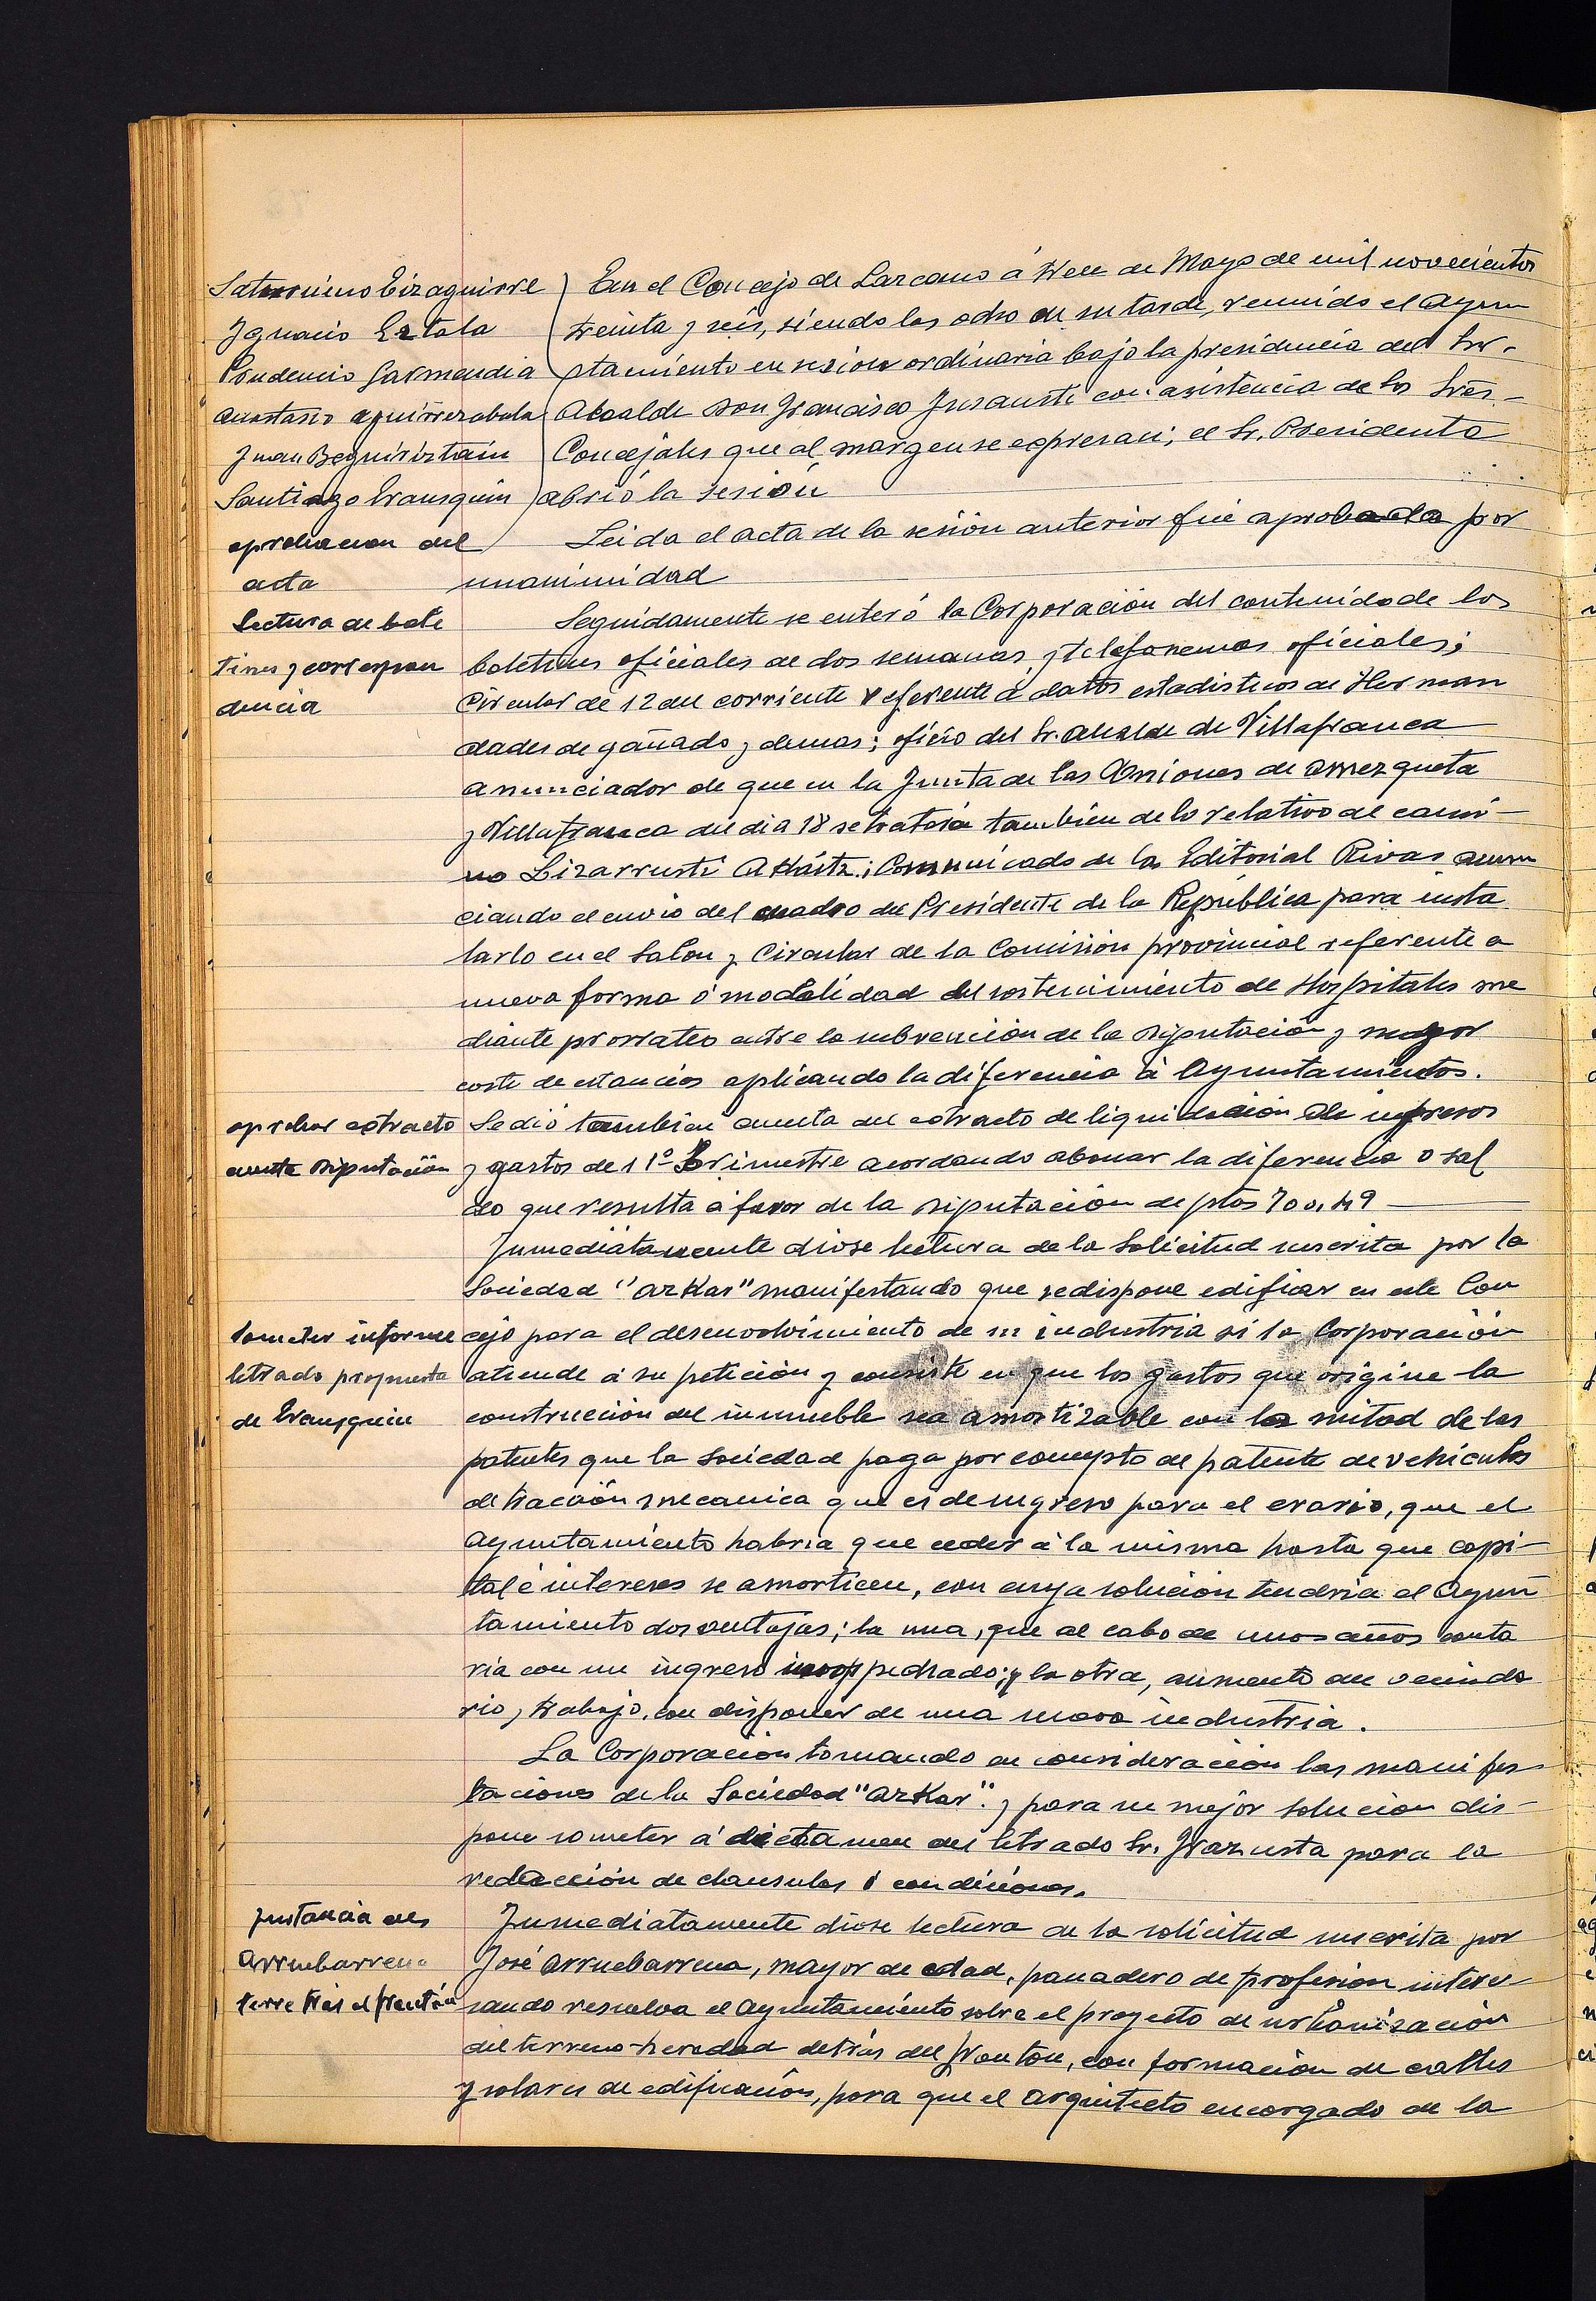 Saturnino Eizaguirre
Ignacio Eztala
Prudencio Garmendia
Anastasio Aguirrezabala
Juan Beguiristain
Santiago Irausquin
En el Concejo de Lazcano á trece de Mayo de mil novecientos
treinta y seis, siendo las ocho de su tarde, reunido el Ayun
tamiento en sesion ordinaria bajo la presidencia del Sr.
Alcalde Don Francisco Insausti con asistencia de los Sres.
Concejales que al margen se expresan; el Sr. Presidente
abrió la sesión
aprobacion del
acta
Leida el acta de la sesión anterior fué aprobada por
unanimidad
Lectura de bole
tines y correspon
dencia
Seguidamente se enteró la Corporación del contenido de los
boletines oficiales de dos semanas y telefonemas oficiales;
Circular de 12 del corriente referente á datos estadisticos de Herman
dades de ganado y demas; oficio del Sr. Alcalde de Villafranca
anunciador de que en la Junta de las Uniones de Amezqueta
y Villafranca del dia 18 se tratará tambien de lo relativo al cami-
no Lizarrusti Ataitz; Comunicado de la Editorial Rivas anun
ciando el envio del cuadro del Presidente de la República para insta
larlo en el Salon y Circular de la Comisión provincial referente a
nueva forma ó modalidad del sostenimiento de Hospitales me
diante prorrateo entre la subvención de la Diputación y mayor
coste de estancias aplicando la diferencia á Ayuntamientos.
aprobar extracto
cuenta Diputación
Se dió tambien cuenta del extracto de liquidación de ingresos
y gastos del 1º Trimestre acordando abonar la diferencia o sal
do que resulta á favor de la Diputación de ptas 700,49
Inmediatamente dióse lectura de la Solicitud suscrita por la
Sociedad "Arkar" manifestando que se dispone edificar en este Con
someter informe
letrado propuesta
de Irausquin
cejo para el desenvolvimiento de su industria si la Corporación
atiende á su petición y consiste en que los gastos que origine la
construcción del inmueble sea amortizable con la mitad de las
patentes que la Sociedad paga por concepto de patente de vehiculos
de tracción mecanica que es de ingreso para el erario, que el
Ayuntamiento habria que ceder á la misma hasta que capi-
tal é intereses se amorticen, con cuya solución tendria el Ayun
tamiento dos ventajas; la una, que al cabo de unos años conta
ria con un ingreso insospechado; y la otra, aumento del vecinda
rio y trabajo, con disponer de una nueva industria.
La Corporación tomando en consideración las manifes
taciones de la Sociedad "Arkar" y para su mejor solucion dis-
pone someter á dictamen del letrado Sr. Irazusta para la
redacción de clausulas ó condiciones.
Instancia de
Arruebarrena
terre tras el frontón
Inmediatamente dióse lectura de la solicitud suscrita por
José Arruebarrena, mayor de edad, panadero de profesion intere-
sando resuelva el Ayuntamiento sobre el proyecto de urbanización
del terreno-heredad detrás del Fronton, con formación de calles
y solares de edificación, para que el arquitecto encargado de la